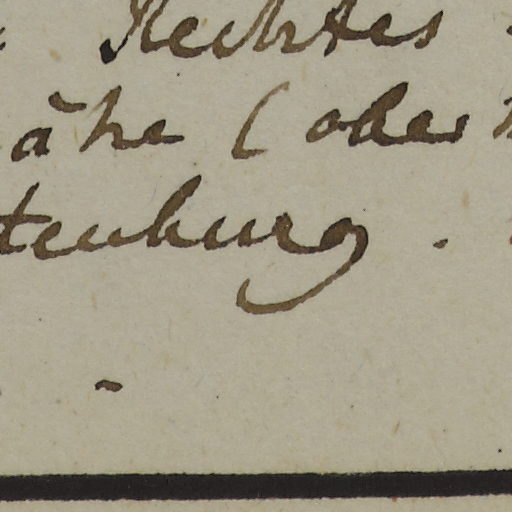 Rechtes
ähe (oder
tenburg.